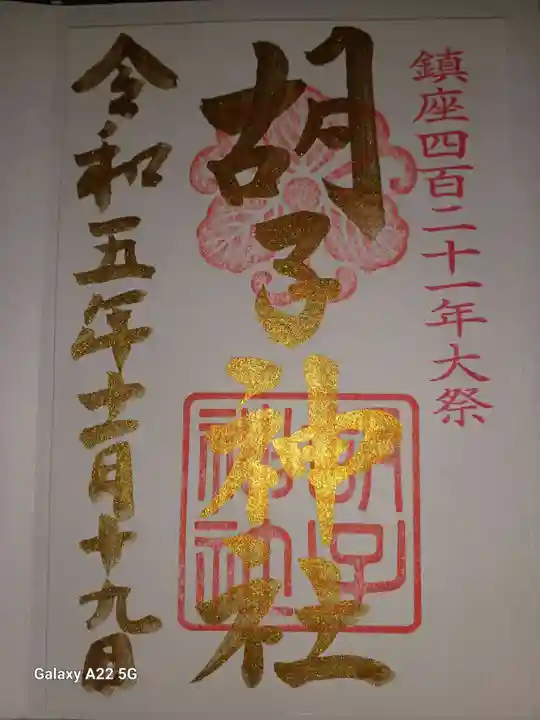 鎮座四百二十一年大祭
胡子神社
胡子
神社
令和五年十一月十九日
Galaxy A22 5G